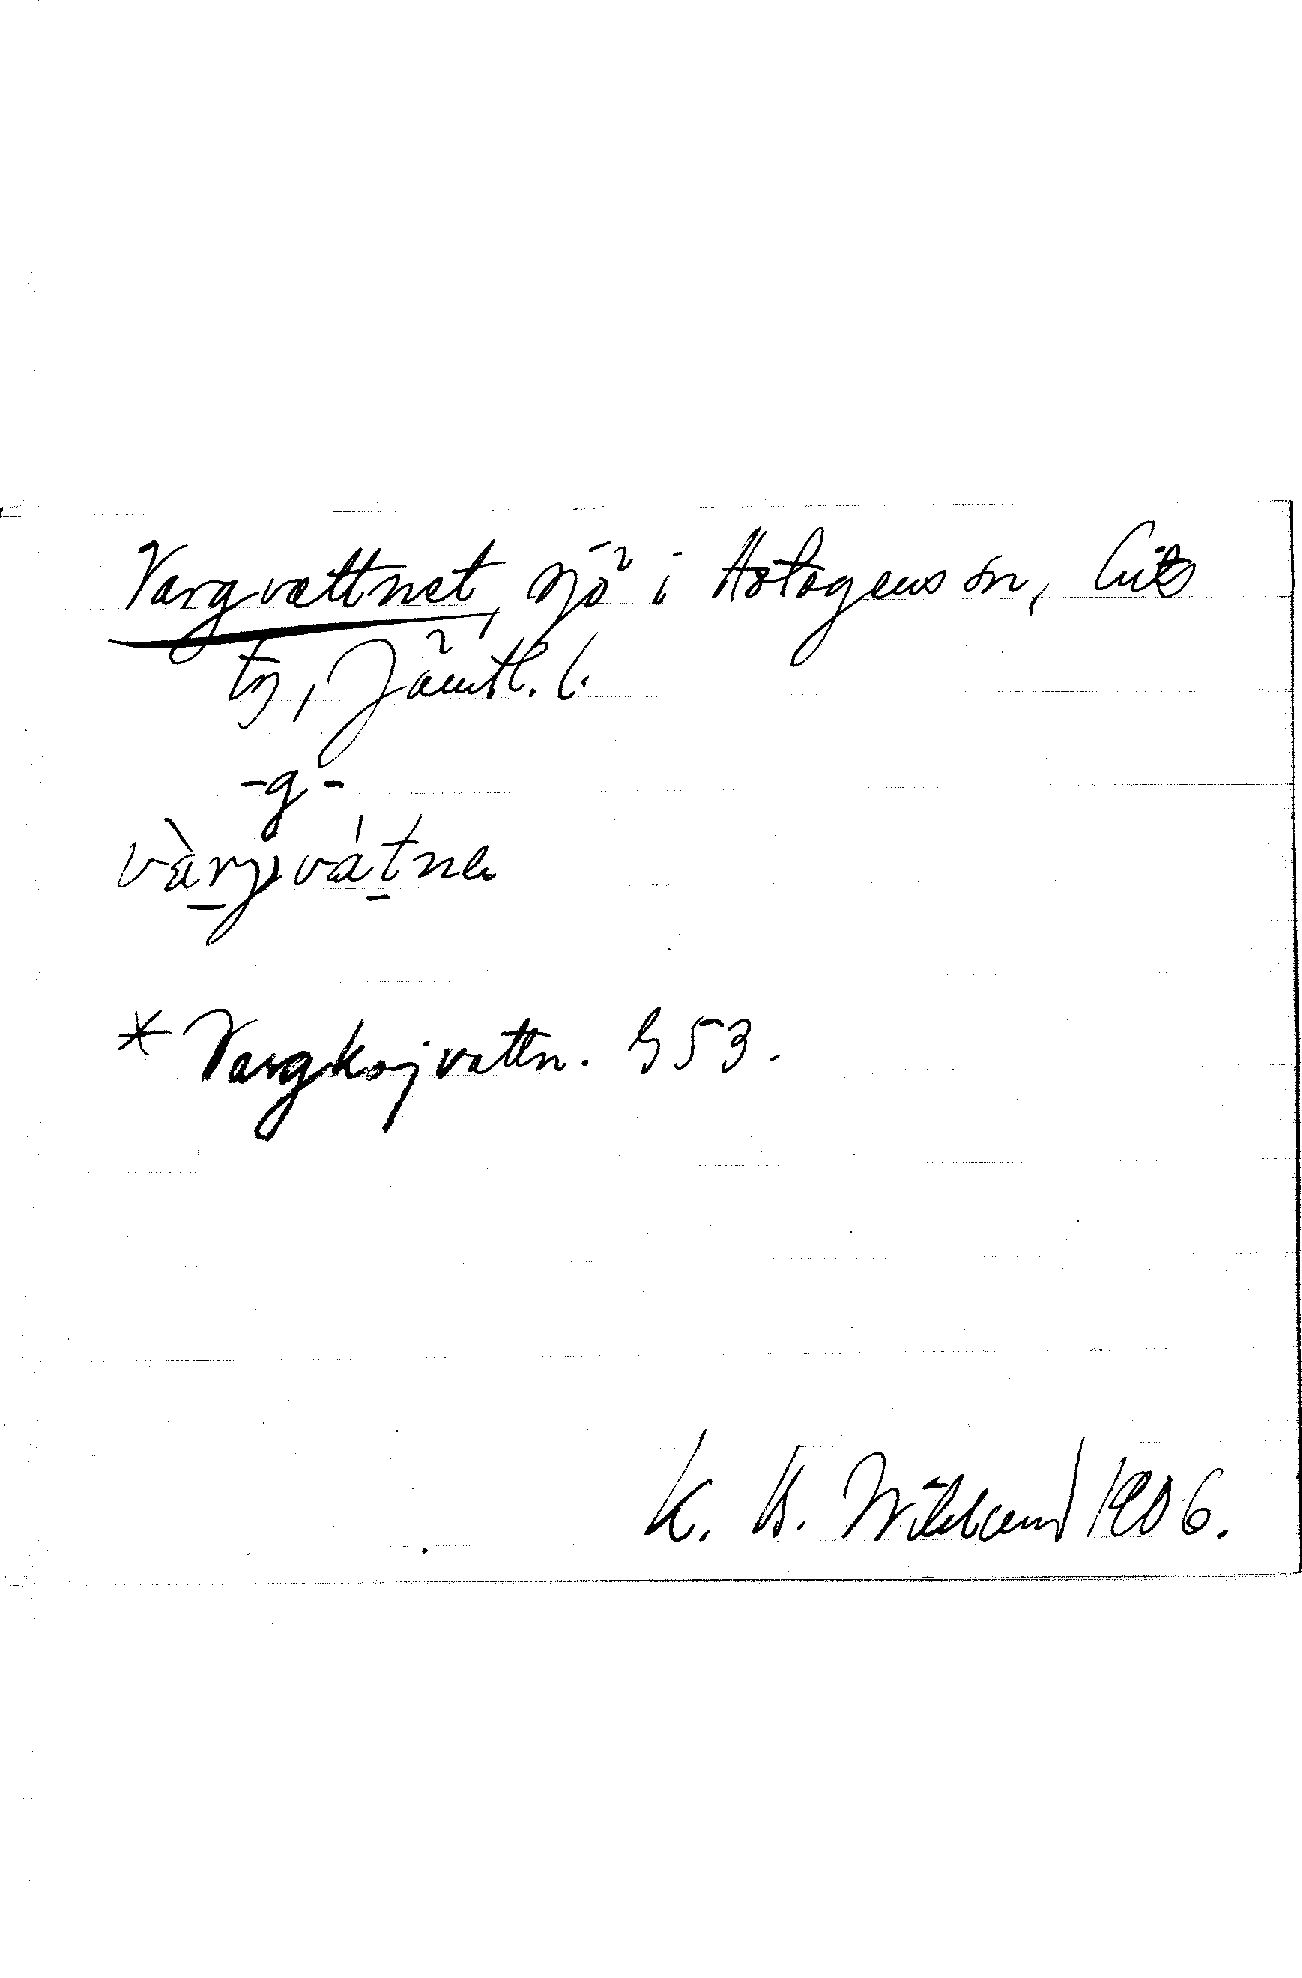 Vargvattnet, sjö i Hotagens sn, Lits
tg, Jämtl. l.
-g-
vàrgvátne
* Vargkojvattn. G 53.
K. B. Wiklund 1906.